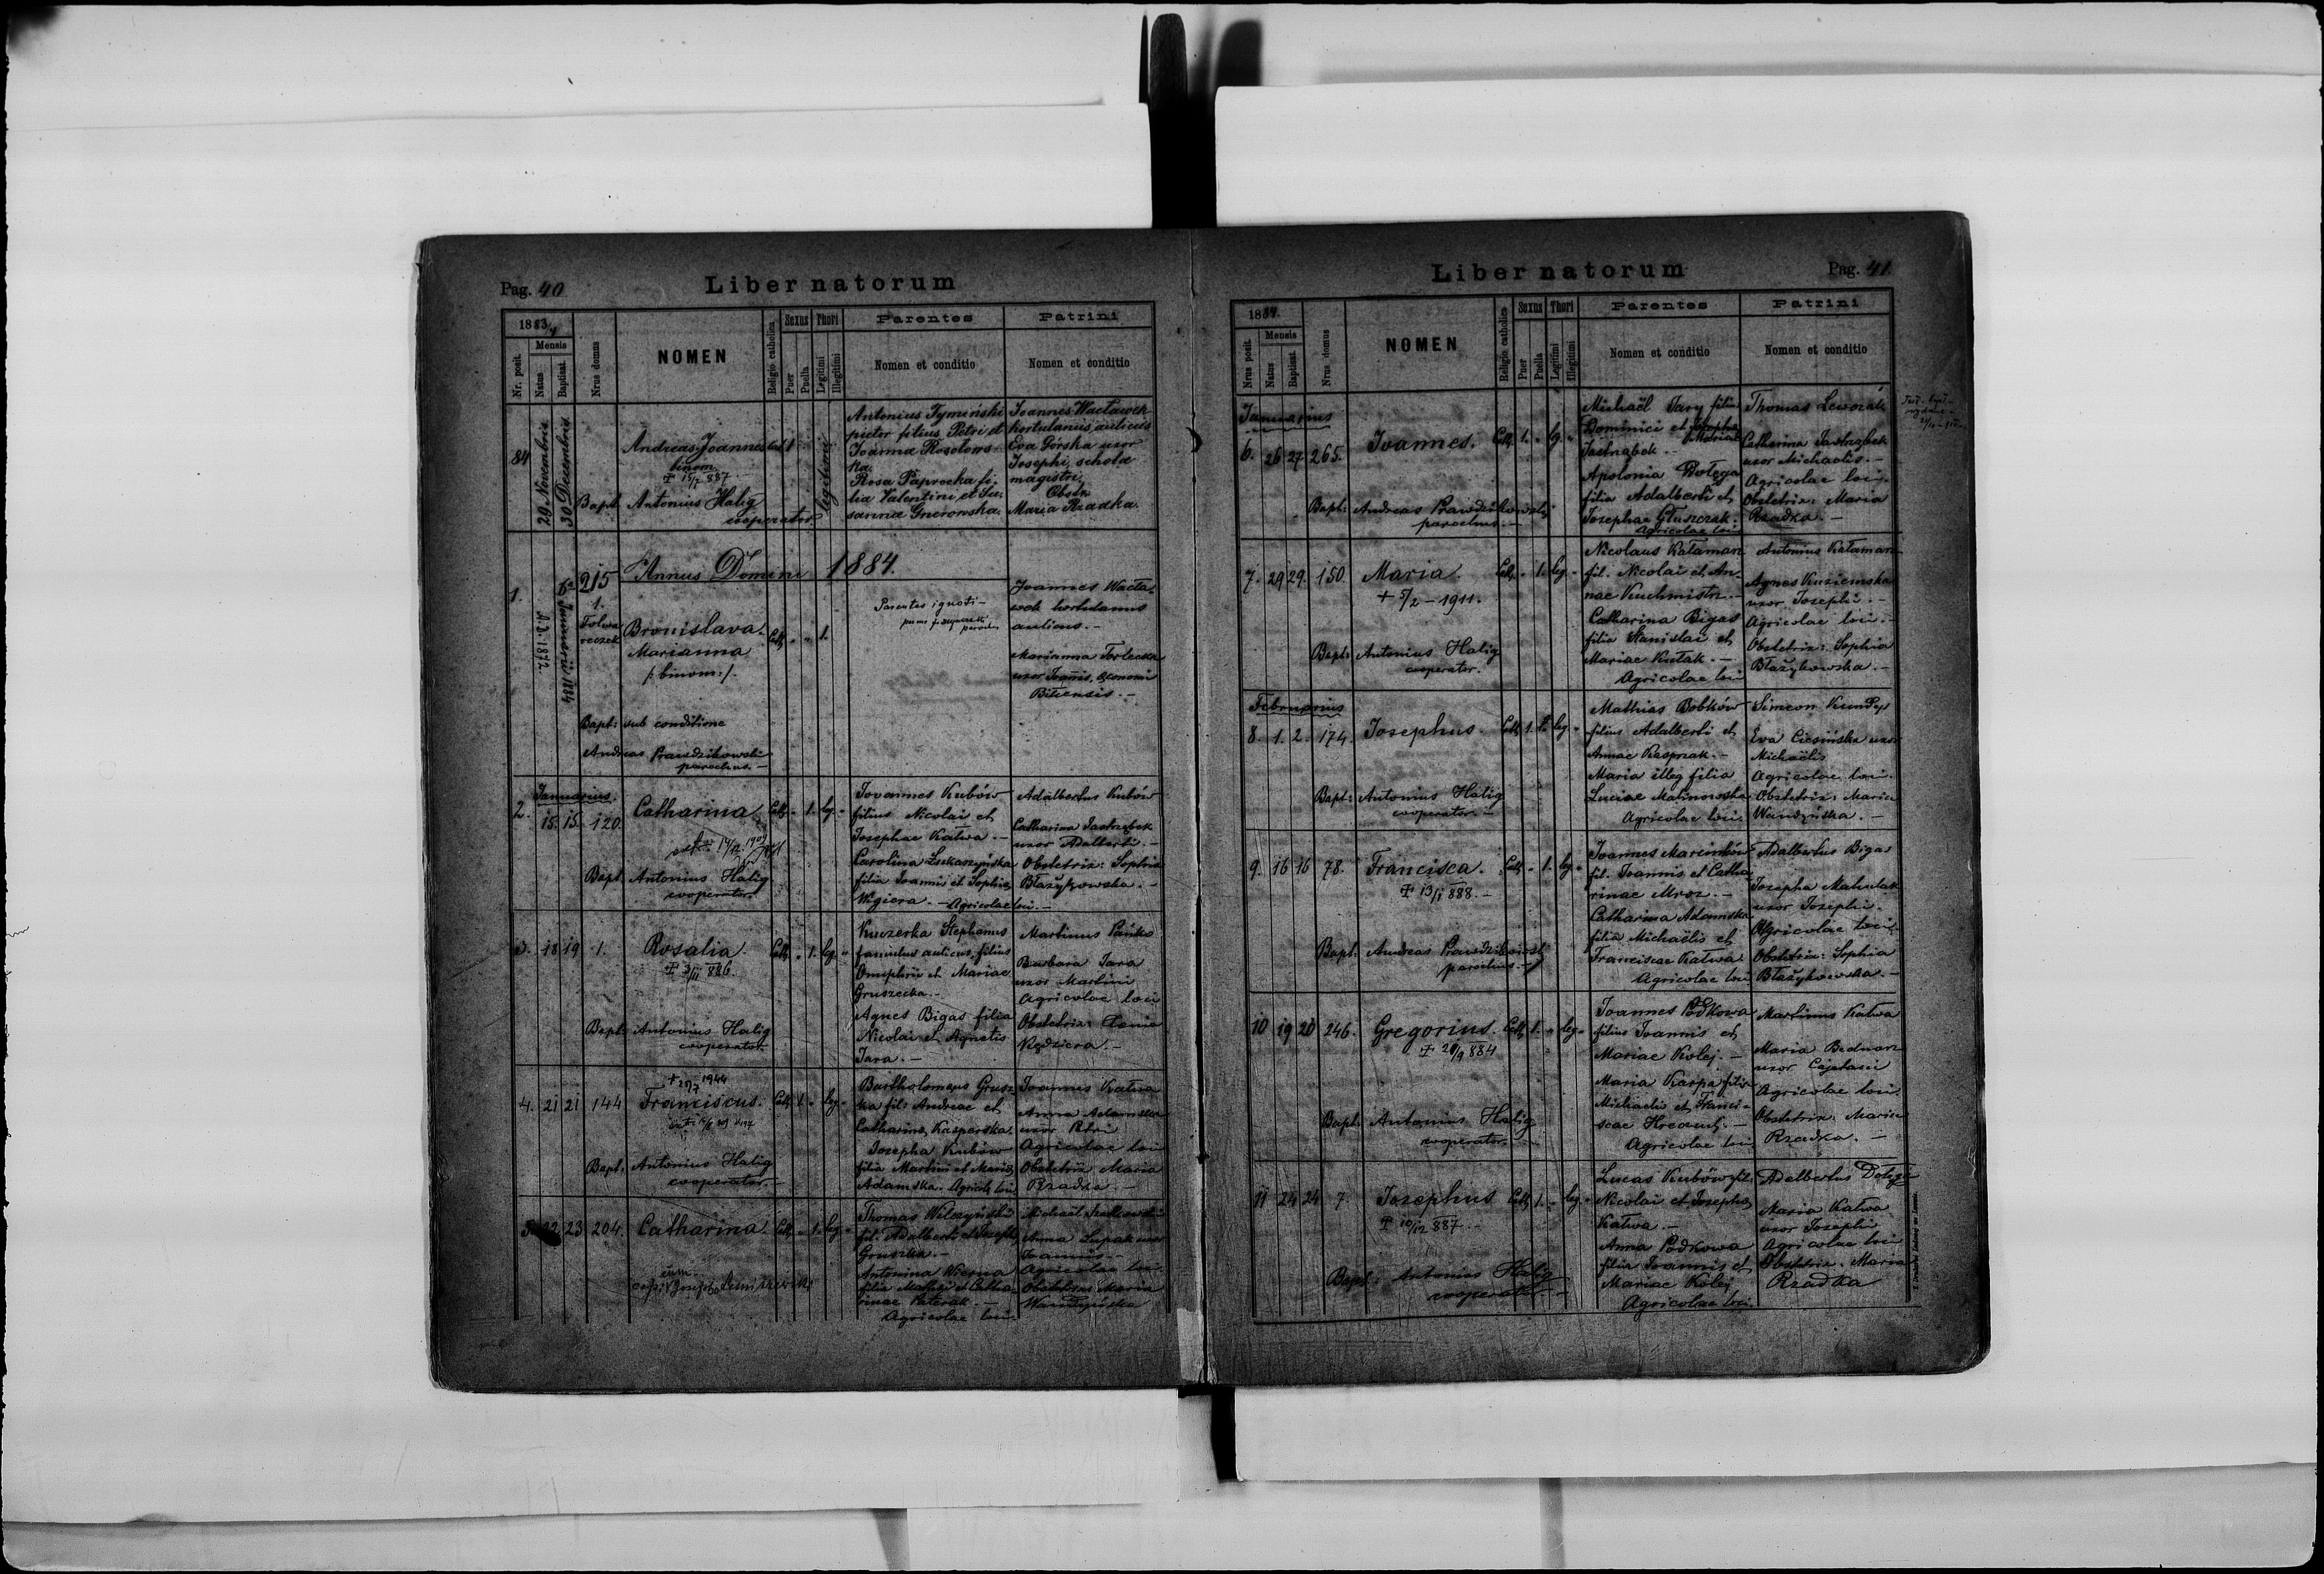 Pag. 40
Liber natorum
1883/4
Nr. posit.
Mensis
Natus
Baptisat.
Nrus domus
NOMEN
Religio catholica
Sexus
Puer
Puella
Thori
Legitimi
Illegitimi
Parentes
Nomen et conditio
Patrini
Nomen et conditio
84
29 Novembris
30 Decembris
Andreas Joannes
binom.
Bapt. Antonius Halig
cooperator
legitimi
Antonius Tymiński
pictor filius Petri et
Joanna Rosolows-
ka.
Rosa Paprocka fi-
lia Valentini et Su-
sanna
Joannes Wacławek
hortulanus aulicus
Eva Górska uxor
Josephi, schola
magistri.
Obstr.
Maria Rzadka.
Annus Domini 1884.
1.
A.D. 1872.
6a Januarii 1884
215
1.
Folwa-
reczek
Bronislava
Marianna
/:binom:/.
Cath. „ „ 1.
Parentes ignoti —
Joannes Wacła-
wek hortulanus
aulicus. —
Marianna Torlecka
uxor Joannis, oeconomi
Bapt: sub conditione
Andreas Prawdzikowski
parochus. —
Januarius.
2. 15. 15. 120.
Catharina
Cath. „ 1. leg. „
Bapt. Antonius Halig
cooperator
Joannes Kubów
filius Nicolai et
Josephae Katwa. —
Carolina Łukaszyńska
filia Joannis et Sophiae
Wegiera. — Agricolae loci. —
Adalbertus Kubów
Catharina Jastrząbek
uxor Adalberti. —
Obstetrix: Sophia
Błażykowska. —
3. 18 19 1.
Rosalia
Cath. „ 1. leg. „
Bapt: Antonius Halig
cooperator.
Kuczerka Stephanus
famulus aulicus, filius
Onuphrii et Mariae
Gruszecka. —
Agnes Bigas filia
Nicolai et Agnetis
Jara. —
Martinus Pańko
Barbara Jara
uxor Martini
Agricolae loci
Obstetrix:
Kędziera. —
4. 21 21 144
1944
Franciscus.
Cath. 1. „ leg. „
Bapt. Antonius Halig
cooperator. —
Bartholomeus Grusz-
ka fil. Andreae et
Catharina Kasperska.
Josepha Kubów
filia Martini et Maria
Adamska. Agricolae loci
Joannes Katwa
Anna Adamska
uxor Petri
Agricolae loci
Obstetrix Maria
Rzadka. —
5. 22 23 204.
Catharina.
Cath. „ 1. leg. „
Thomas Wilczyński
fil. Adalberti et Josepha
Gruszka. —
Antonina Wierna
filia Mathei et Catha-
rinae Paterak. —
Agricolae loci.
Anna Łupak uxor
Joannis. —
Agricolae loci.
Obstetrix: Maria
Wandzyńska
Liber natorum
Pag. 41.
1884.
Nrus posit.
Mensis
Natus
Baptisat.
Nrus domus
NOMEN
Religio catholica
Sexus
Puer
Puella
Thori
Legitimi
Illegitimi
Parentes
Nomen et conditio
Patrini
Nomen et conditio
Januarius
6. 26 27 265.
Joannes.
Cath. 1. „ leg. „
Bapt: Andreas Prawdzikowski
parochus. —
Michaël Jary filius
Dominici et Mariae
Jastrząbek. —
Apolonia Dołęga
filia Adalberti et
Josephae Głuszczak.
Agricolae loci
Thomas Leworak
Catharina Jastrząbek
uxor Michaelis. —
Agricolae loci.
Obstetrix: Maria
Rzadka. —
7. 29 29. 150.
Maria.
+ 5/2 — 1911.
Cath. „ 1. leg. „
Bapt: Antonius Halig
cooperator.
Nicolaus Kałamarz
fil. Nicolai et An-
nae Kuchmistrz. —
Catharina Bigas
filia Stanislai et
Mariae Kutak. —
Agricolae loci
Antonius Kałamarz
Agnes Kuziemska
uxor Josephi. —
Agricolae loci. —
Obstetrix: Sophia
Błażykowska. —
Februarius
8. 1. 2. 174.
Josephus.
Cath. 1. leg. „
Bapt: Antonius Halig
cooperator. —
Mathias Bobków
filius Adalberti et
Annae Kasprzak. —
Maria illeg. filia
Luciae Malinowska
Agricolae loci.
Simeon Kundys
Eva Ciesińska uxor
Michaëlis
Agricolae loci.
Obstetrix: Maria
Wandzyńska. —
9. 16 16 78.
Francisca.
+ 13/1 888. —
Cath. „ 1. leg. „
Bapt: Andreas Prawdzikowski
parochus. —
Joannes Marcinków
fil. Joannis et Catha-
rinae Mroz. —
Catharina Adamska
filia Michaëlis et
Franciscae Katwa.
Agricolae loci
Adalbertus Bigas
Josepha Matulak
uxor Josephi.
Agricolae loci
Obstetrix: Sophia
Błażykowska. —
10 19 20 246.
Gregorius.
+ 20/9 884
Cath. 1. „ leg. „
Bapt: Antonius Halig
cooperator. —
Joannes Podkowa
filius Joannis et
Mariae Kolej. —
Maria Karpa filia
Michaelis et Franci-
scae
Agricolae loci.
Martinus Katwa
Maria Bednarz
uxor Cajetani
Agricolae loci.
Obstetrix: Maria
Rzadka. —
11 24 24 7.
Josephus
+ 10/12 887. —
Cath. 1. „ leg. „
Bapt: Antonius Halig
cooperator —
Lucas Kubów fil.
Nicolai et Josepha
Katwa. —
Anna Podkowa
filia Joannis et
Mariae Kolej
Agricolae loci.
Adalbertus Dołęga
Maria Katwa
uxor Josephi
Agricolae loci
Obstetrix: Maria
Rzadka